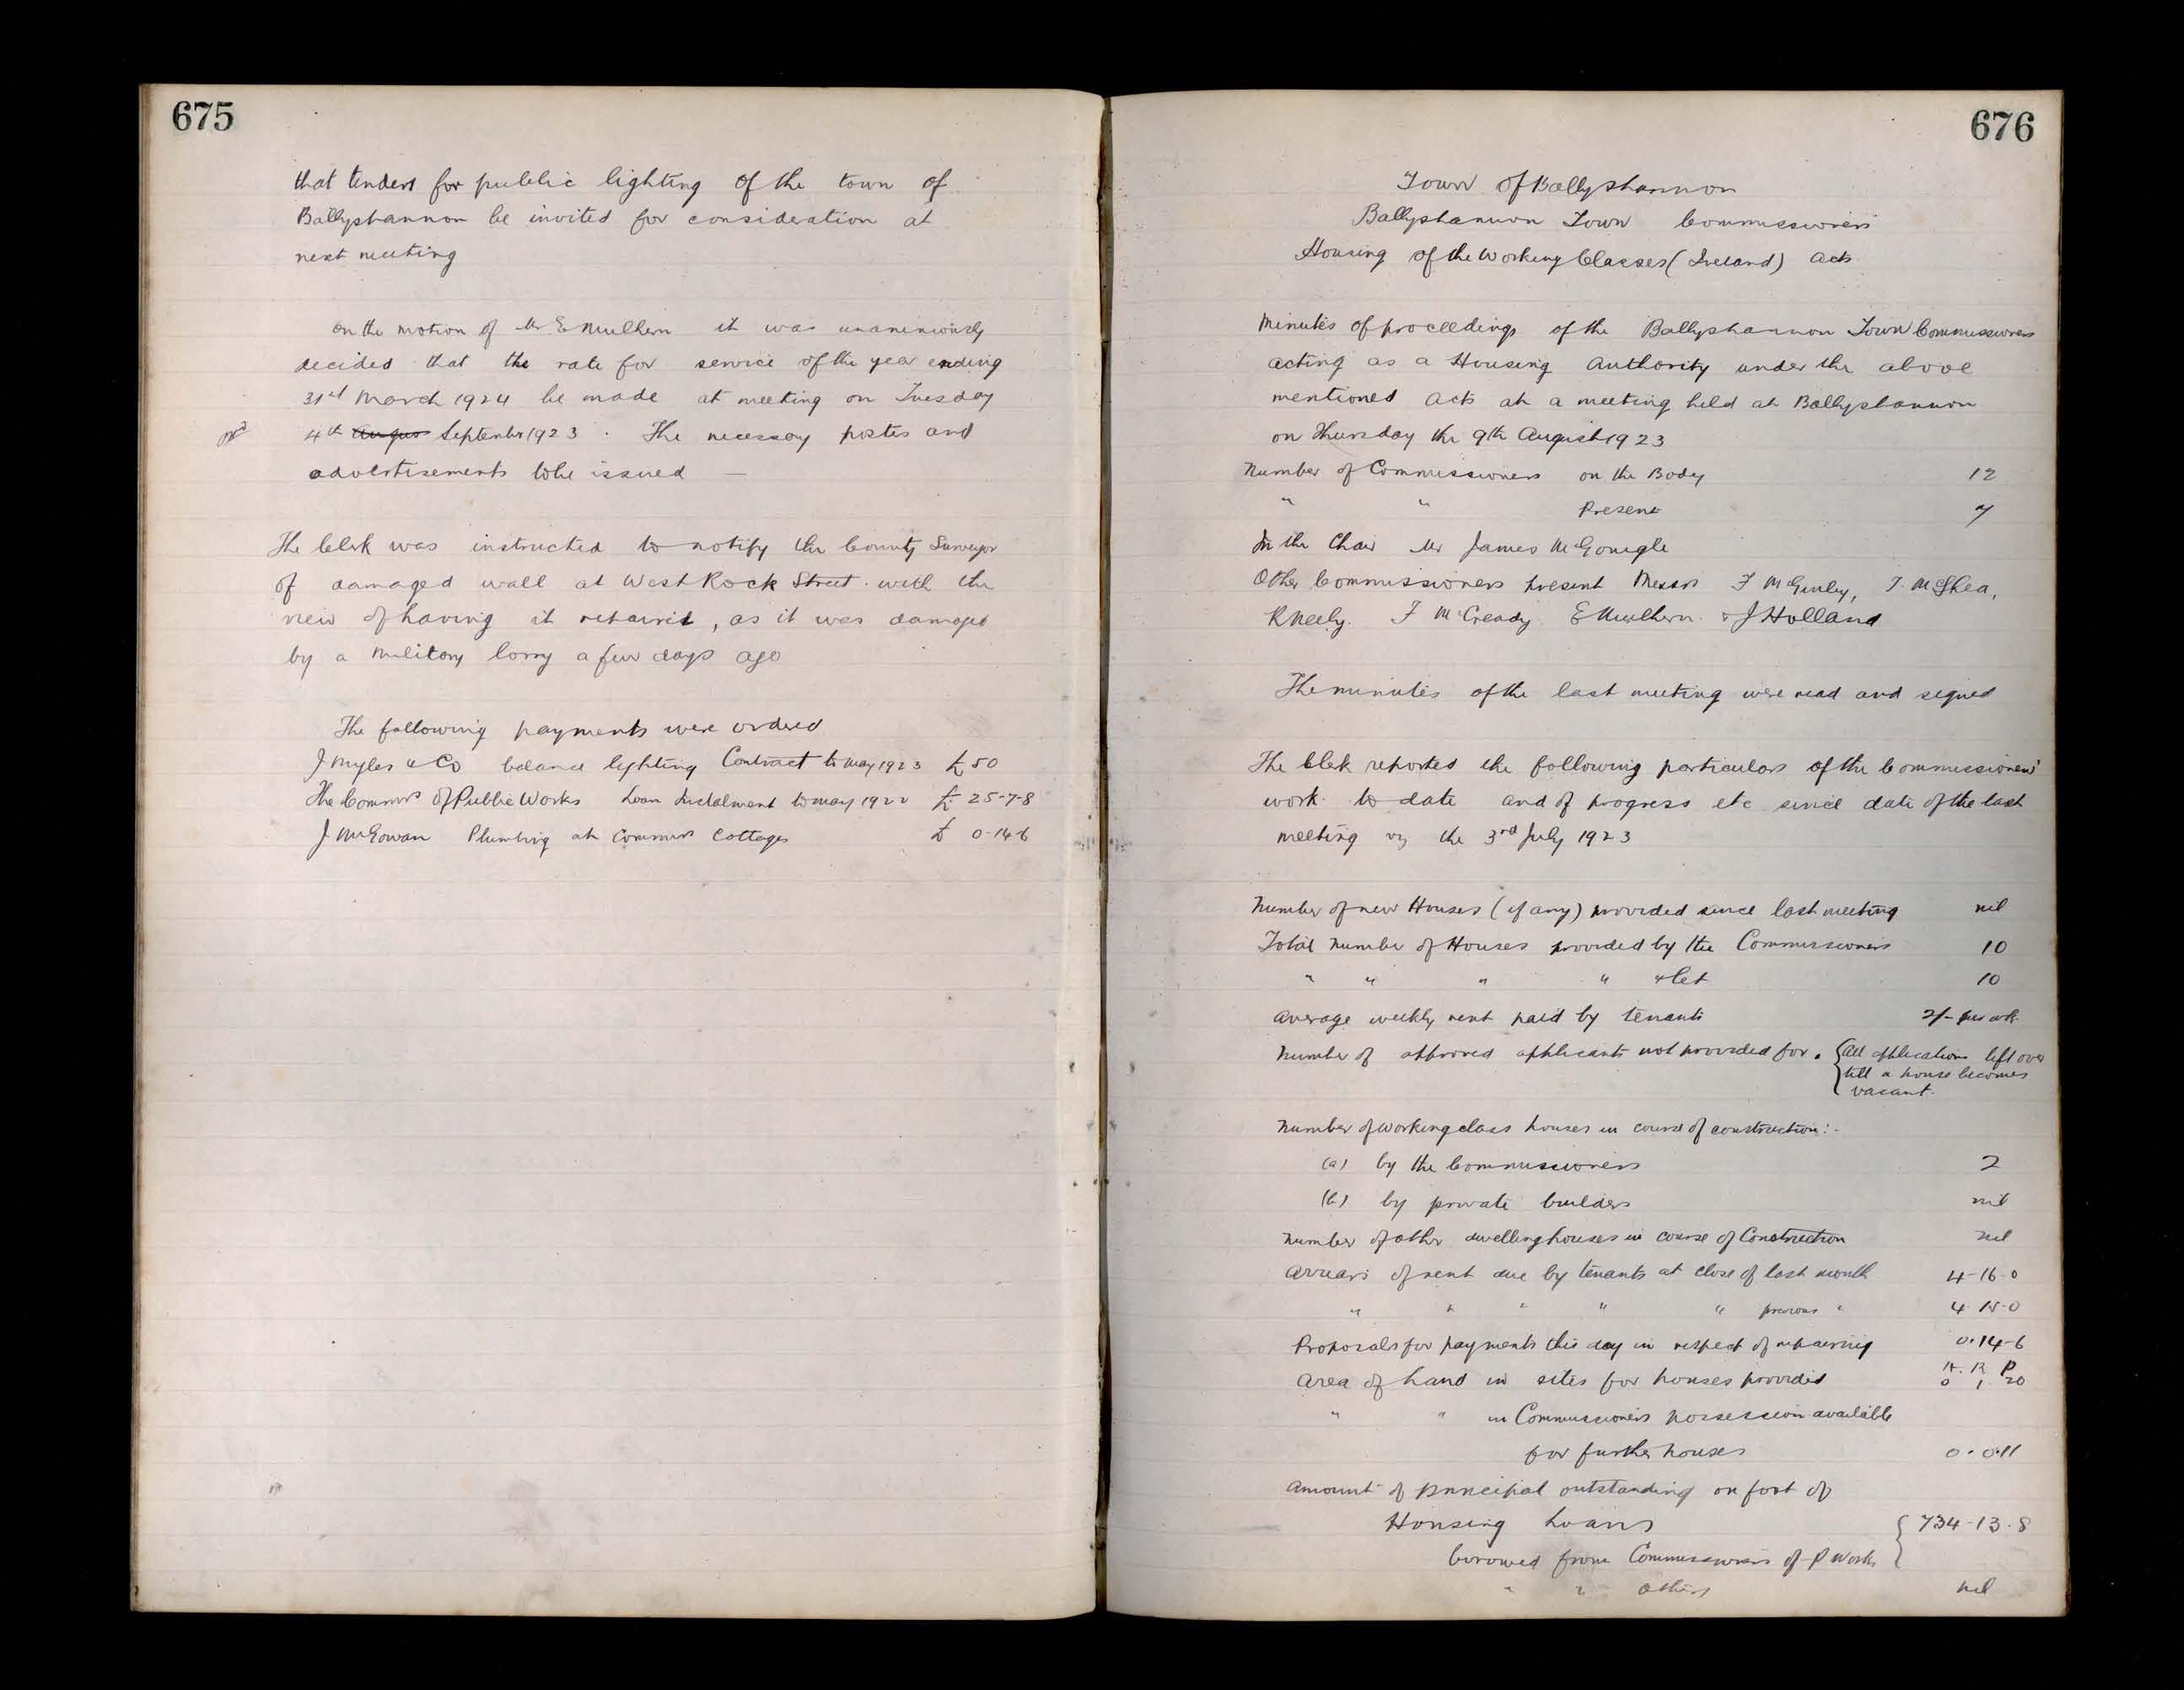 675
that tenders for public lighting of the town of
Ballyshannon be invited for consideration at
next meeting
On the motion of Mr E Mulhern it was unanimously
decided that the rate for service of the year ending
31st March 1924 be made at meeting on Tuesday
4th Augus September 1923. The necessary postes and
advertisements to be issued —
The Clerk was instructed to notify the County Surveyor
of damaged wall at West Rock Street. with the
view of having it repaired, as it was damaged
by a military lorry a few days ago
The following payments were ordered
J Myles & Co balance lighting Contract to May 1923 £50
The Commrs of Public Works Loan Instalment to May 1922 £ 25-7-8
J McGowan Plumbing at Commrs Cottages £ 0-14-6
676
Town of Ballyshannon
Ballyshannon Town Commissioners
Housing of the Working Classes (Ireland) Acts
Minutes of proceedings of the Ballyshannon Town Commissioners
acting as a Housing Authority under the above
mentioned Acts at a meeting held at Ballyshannon
on Thursday the 9th August 1923
Number of Commissioners on the Body 12
" " Present 7
In the Chair Mr James McGonigle
Other Commissioners present Messrs F McGinley, T. McShea,
R Neely. F McCready E Mulhern & J Holland
The minutes of the last meeting were read and signed
The Clerk reported the following particulars of the Commissioners'
work to date and of progress etc since date of the last
meeting viz the 3rd July 1923
Number of new Houses (if any) provided since last meeting nil
Total number of Houses provided by the Commissioners 10
" " " " " let 10
Average weekly rent paid by tenants 2/- per wk.
Number of approved applicants not provided for. { All applications left over
till a house becomes
vacant.
Number of working class houses in course of construction:-
(a) by the Commissioners 2
(b) by private builders nil
Number of other dwelling houses in course of Construction nil
Arrears of rent due by tenants at close of last month 4-16-0
" " " " " previous " 4-15-0
Proposals for payments this day in respect of repairing 0.14-6
A. R. P
Area of Land in sites for houses provided 0 1. 20
" " in Commissioners possession available
for further houses 0.0.11
Amount of principal outstanding on foot of
Housing Loans { 734-13.8
borrowed from Commissioners of P Works
" " others nil